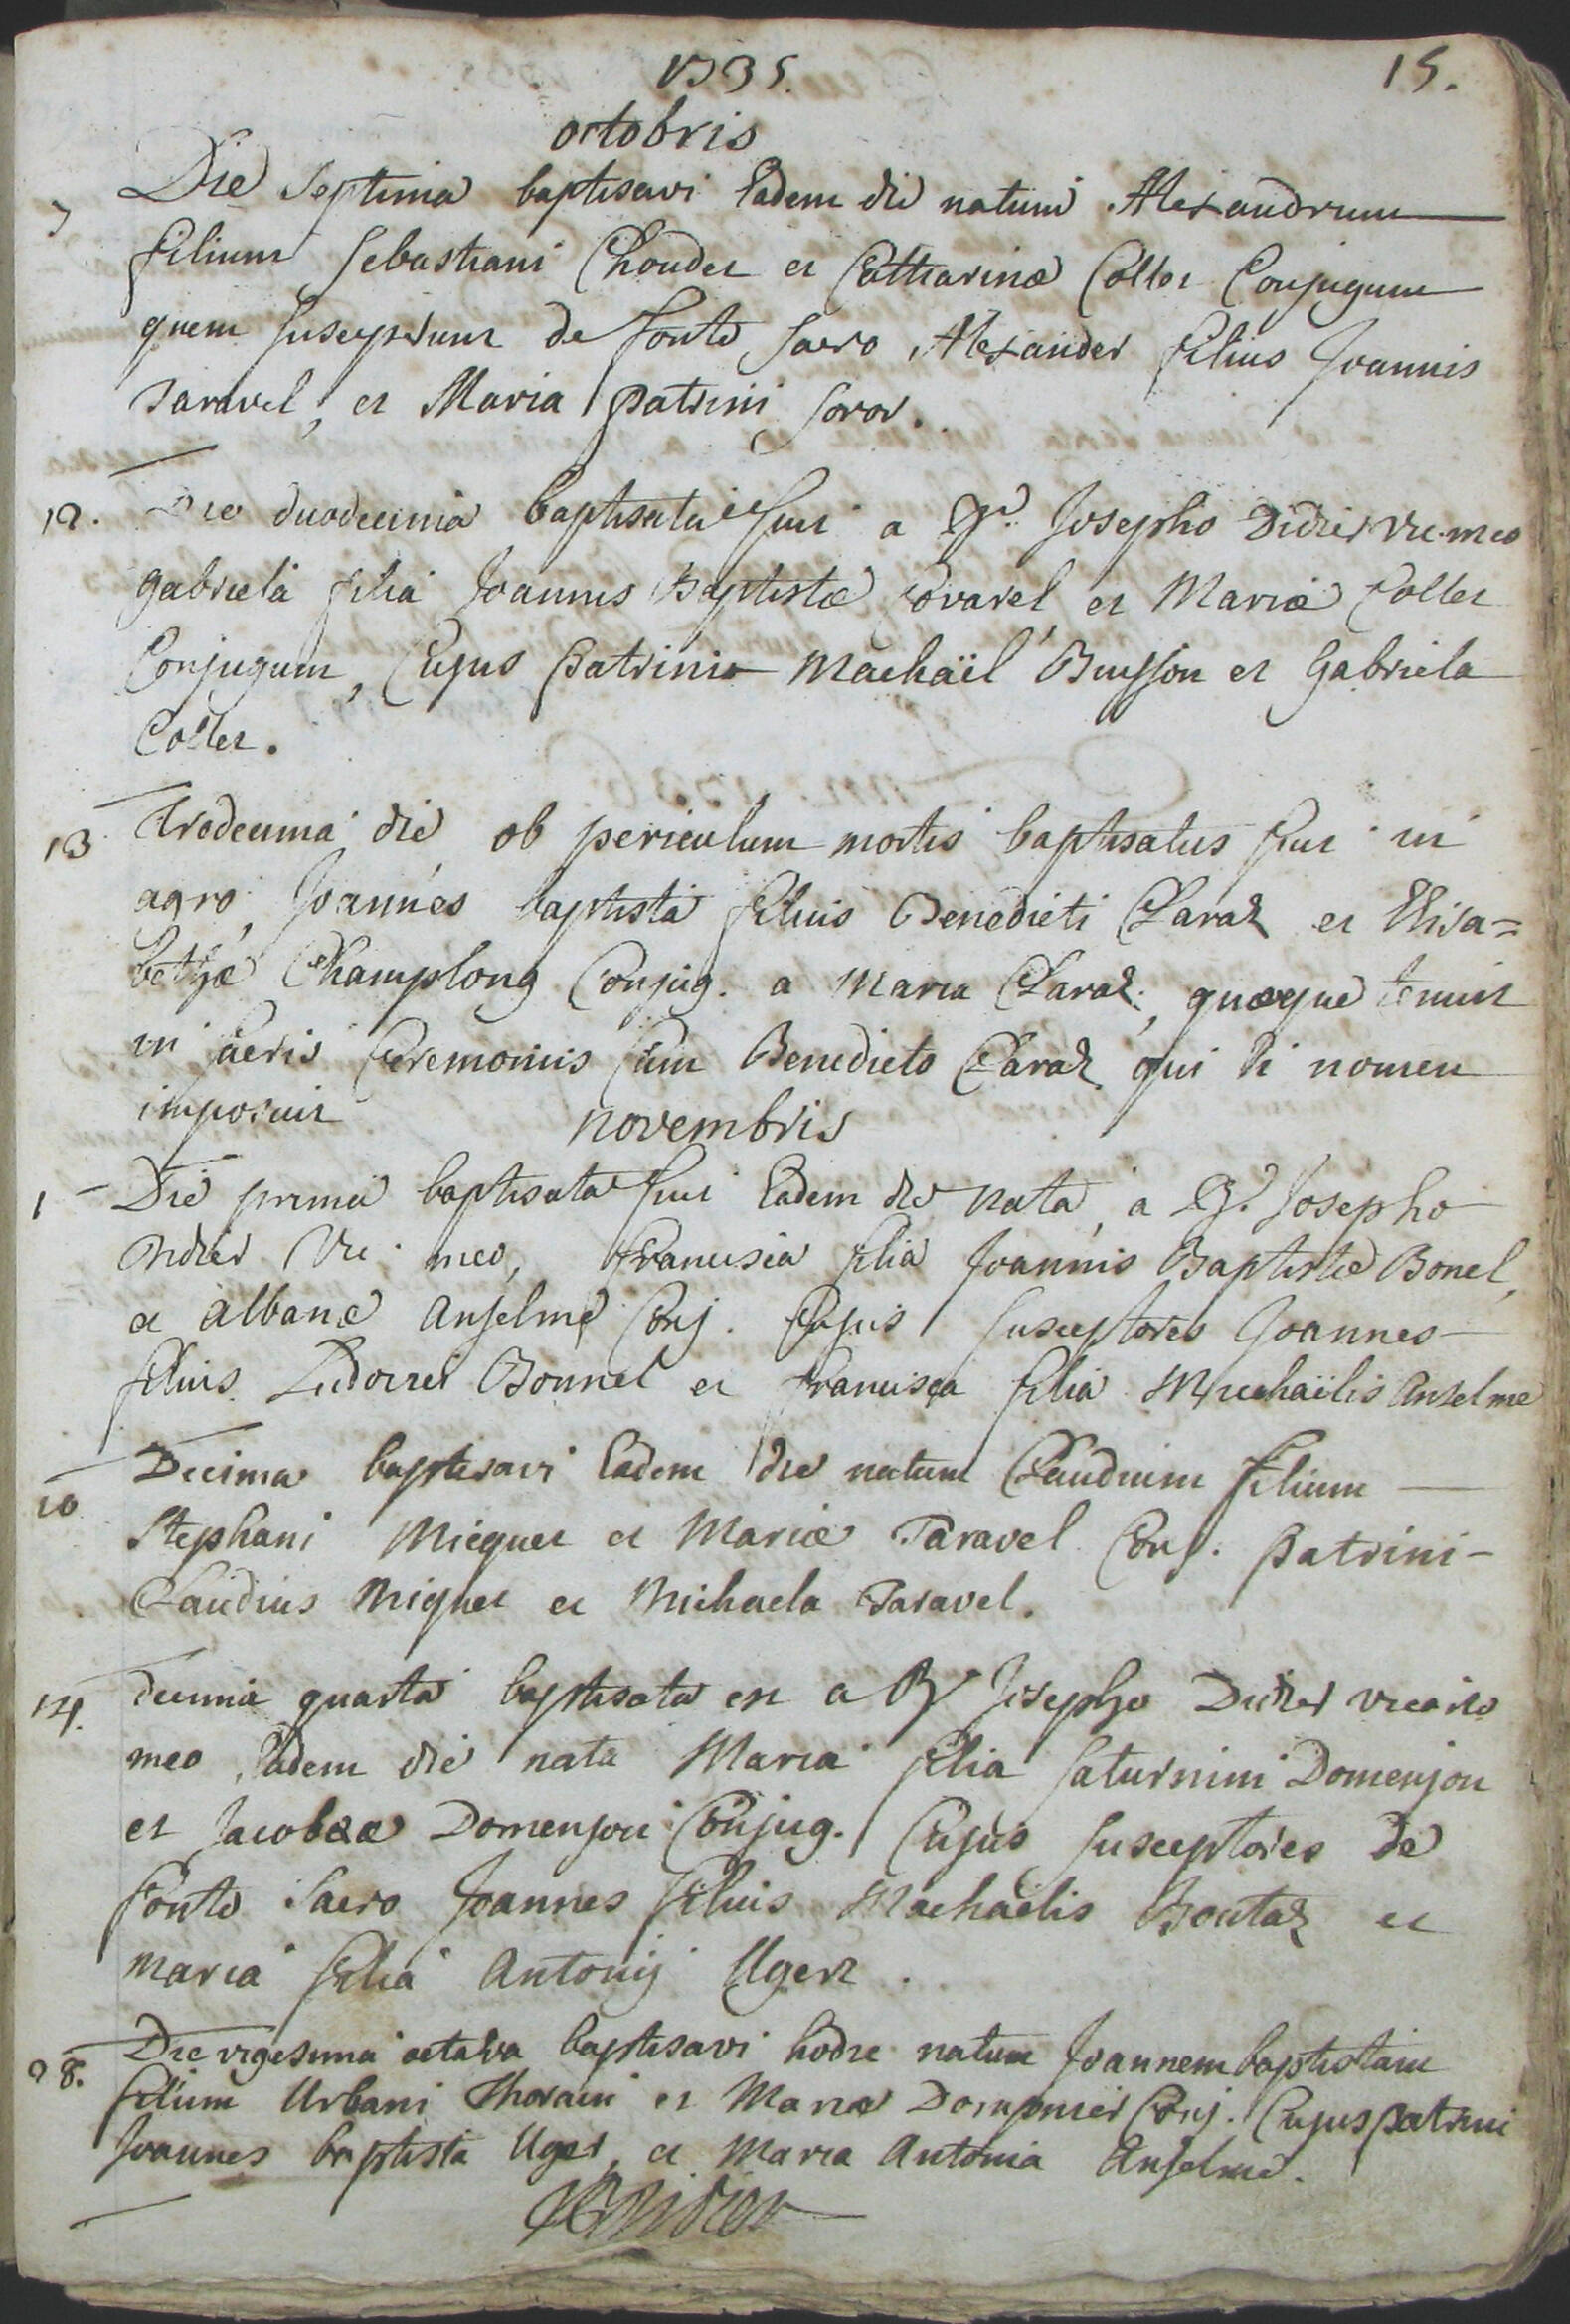 1735. 15.
octobris
7 Die septima baptisavi Eadem die natum Alexandrum
filium Sebastiani Choudet et Catharinæ Collet Conjugum
quem susceperunt de fonte sacro Alexander filius Joannis
taravel, et Maria patrini soror.
12. Die duodecima baptisata fuit a Rd. Josepho Didier vic. meo
gabriela filia Joannis Baptistæ et Mariæ Collet
Conjugum, Cujus patrini Machaël Buisson et Gabriela
Collet.
13 trodecima die ob periculum mortis baptisatus fuit in
agro, Joannes baptista filius Benedicti Claraz et Elisa=
bethæ Champlong Conjug. a Maria Claraz, quæque tenuit
in sacris Cæremoniis cum Benedicto Claraz qui ei nomen
imposuit
novembris
1 Die prima baptisata fuit Eadem die nata, a Rd. Josepho
Didier vic. meo, francisca filia Joannis Baptistæ Bonel,
et albanæ anselme Conj. Cujus susceptores Joannes
filius Bonnel et francisca filia Michaëlis anselme
10 Decima baptisavi Eadem die natum Claudium filium
Stephani Miequet et Mariæ Taravel Conj. patrini
Claudius Miquet et Michaela Taravel.
14. decima quarta baptisata est a Rd Josepho Didier vicario
meo, Eadem die nata Maria filia saturnini Domenjon
et Jacobææ Domenjon Conjug. Cujus susceptores de
fonte sacro Joannes filius Machaelis Boutaz et
maria filia Antonij Uget.
28. Die vigesima octava baptisavi hodie natum Joannem baptistam
filium Urbani et Mariæ Dompnier Conj. Cujus patrini
Joannes baptista Uget, et Maria Antonia Anselme.